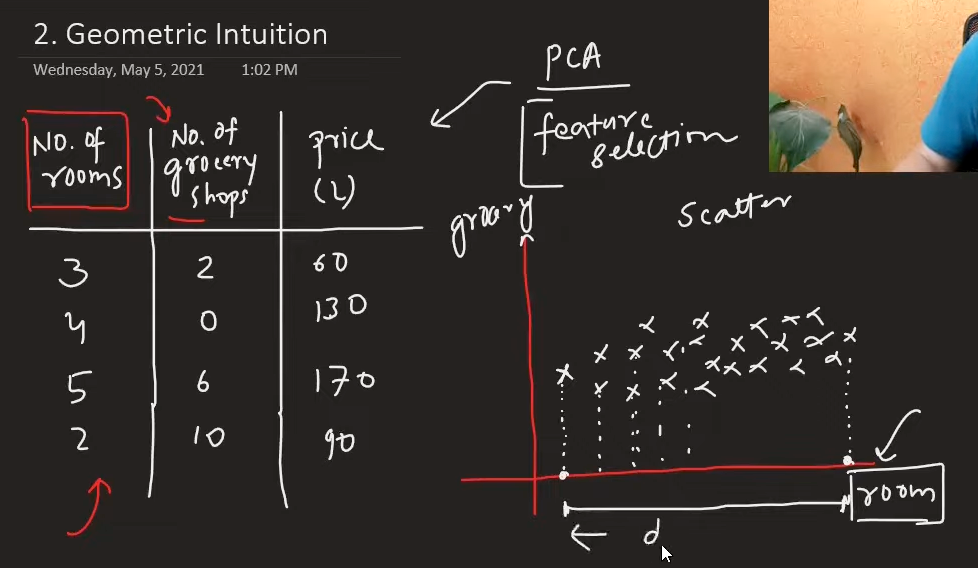 2. Geometric Intuition
Wednesday, May 5, 2021 1:02 PM
PCA
feature
selection
No. of
rooms
No. of
grocery
shops
price
(L)
3 2 60
4 0 130
5 6 170
2 10 90
grocery
Scatter
room
d